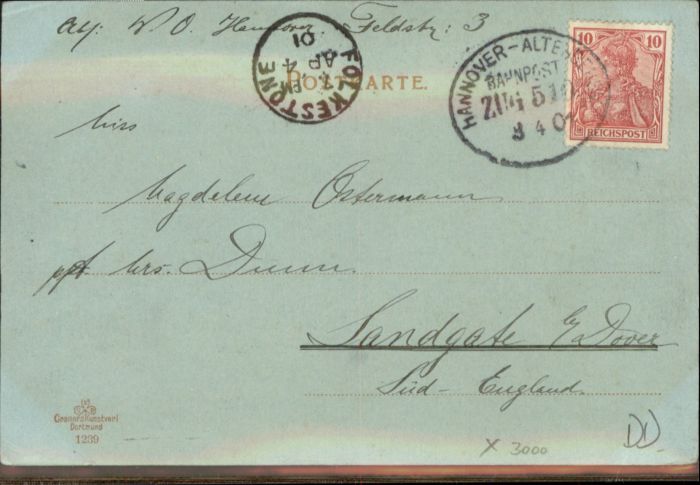 W O. Hannover Feldstr: 3
FOLKESTONE
AP 4
01
POSTKARTE.
HANNOVER-ALTE
BAHNPOST
ZUG 51
3 4 0
10 10
REICHSPOST
Miss
Magdalene Ostermann
Mrs. Dunn.
Sandgate b/Dover
Süd-England.
Dortmund
1239
X 3000